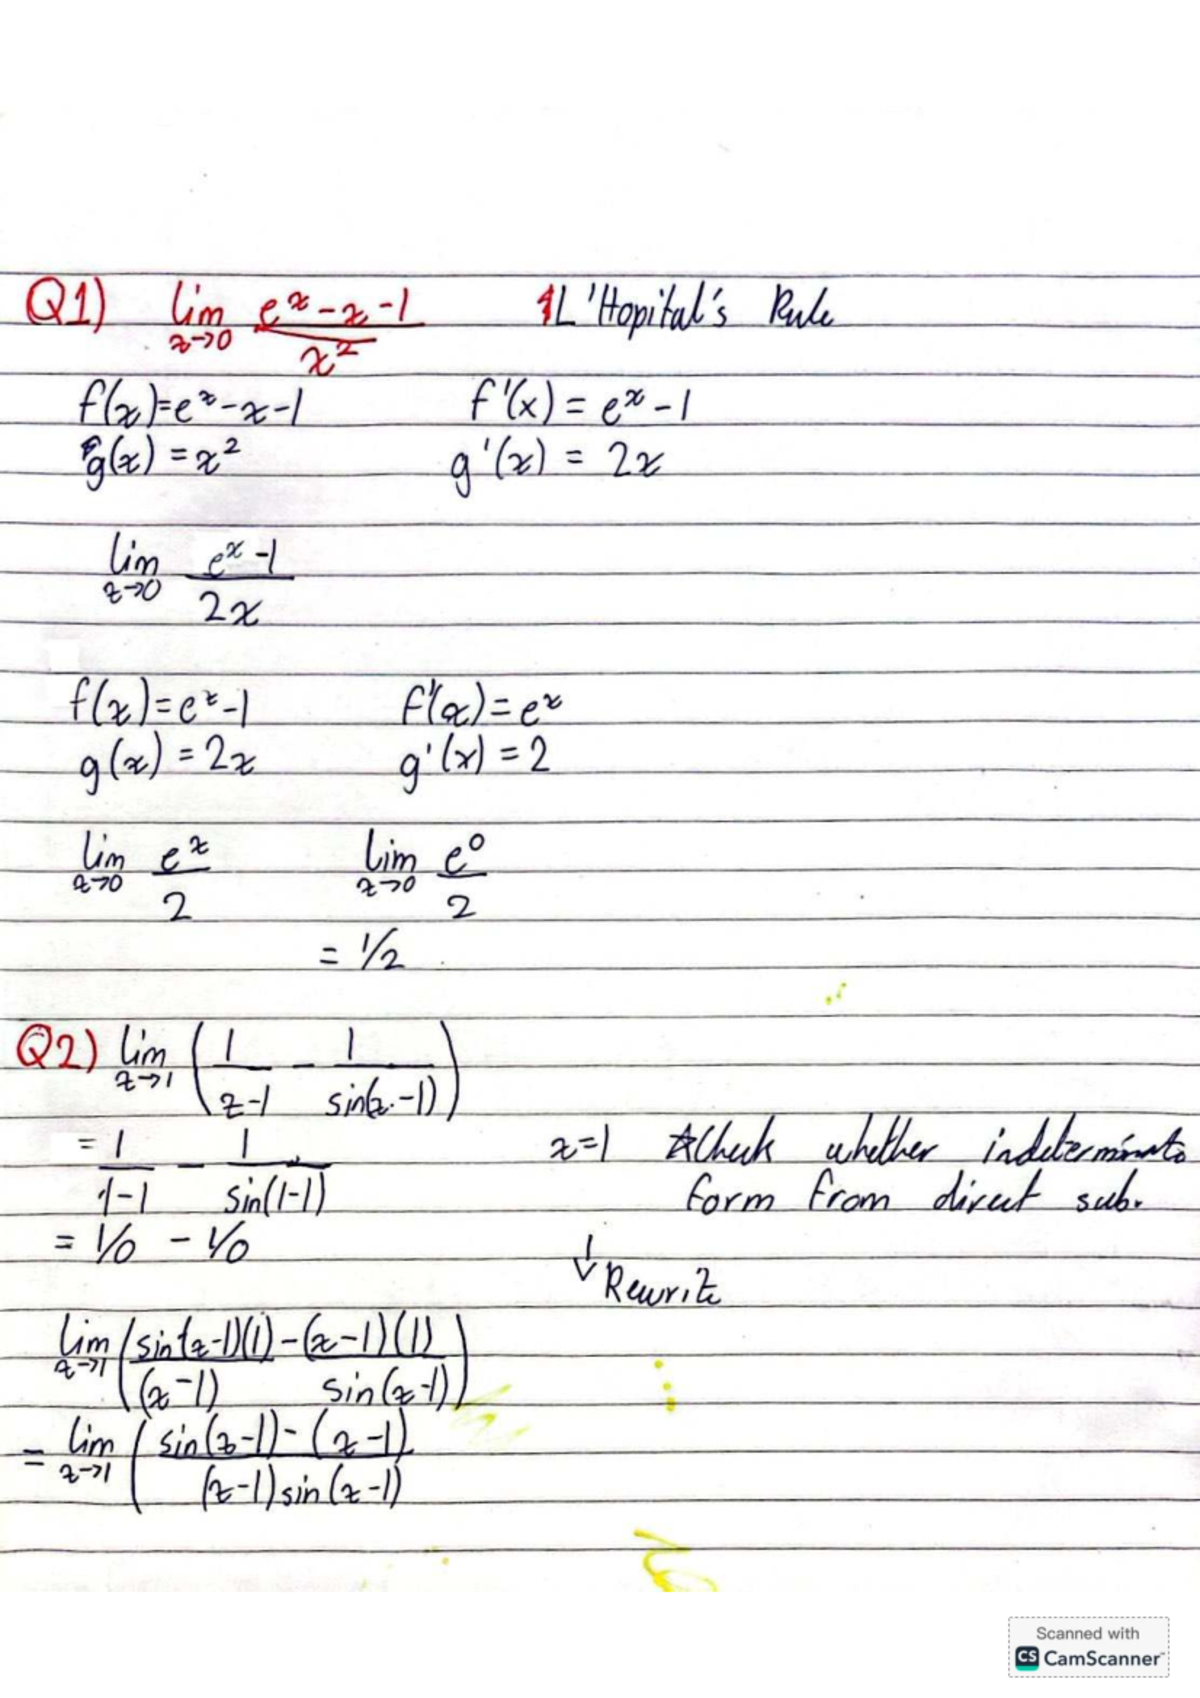 Q1) lim x→0 (e^x - x - 1)/x² L'Hopital's Rule
f(x)=e^x-x-1 f'(x) = e^x - 1
g(x) = x² g'(x) = 2x
lim x→0 (e^x - 1)/2x
f(x)=e^x-1 f'(x)=e^x
g(x) = 2x g'(x) = 2
lim x→0 e^x/2 lim x→0 e^0/2
= 1/2
Q2) lim x→1 (1/(x-1) - 1/sin(x-1))
= 1/(1-1) - 1/sin(1-1) x=1 ☆Check whether indeterminate
form from direct sub.
= 1/0 - 1/0
↓ Rewrite
lim x→1 (sin(x-1)(1) - (x-1)(1) / (x-1) sin(x-1))
= lim x→1 (sin(x-1) - (x-1) / (x-1)sin(x-1)
Scanned with
CS CamScanner